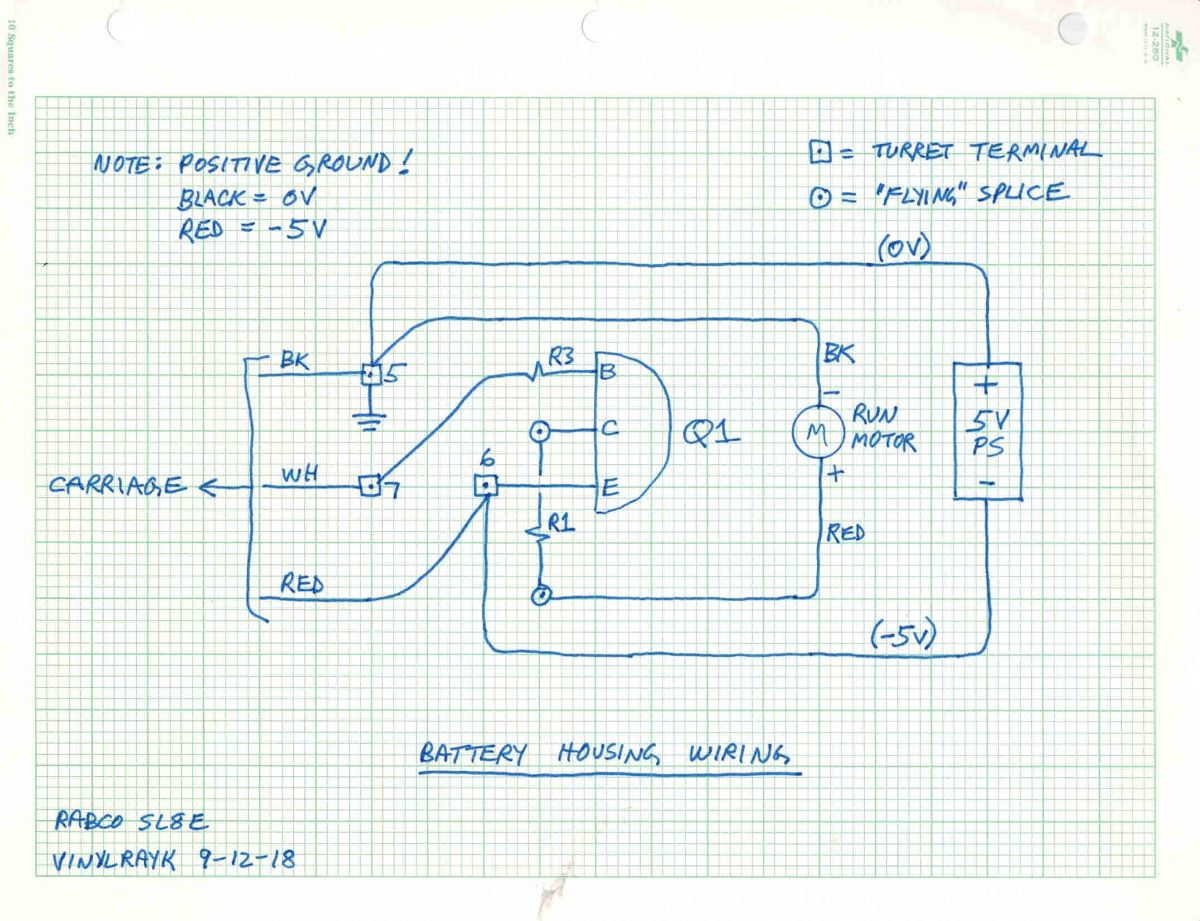 10 Squares to the Inch
NATIONAL
12-280
NOTE: POSITIVE GROUND!
BLACK = 0V
RED = -5V
= TURRET TERMINAL
= "FLYING" SPLICE
(0V)
BK
5
R3
B
BK
-
+
C
Q1
M
RUN
MOTOR
5V
PS
6
CARRIAGE
WH
7
E
+
-
R1
RED
RED
(-5V)
BATTERY HOUSING WIRING
RABCO SL8E
VINYLRAYK 9-12-18